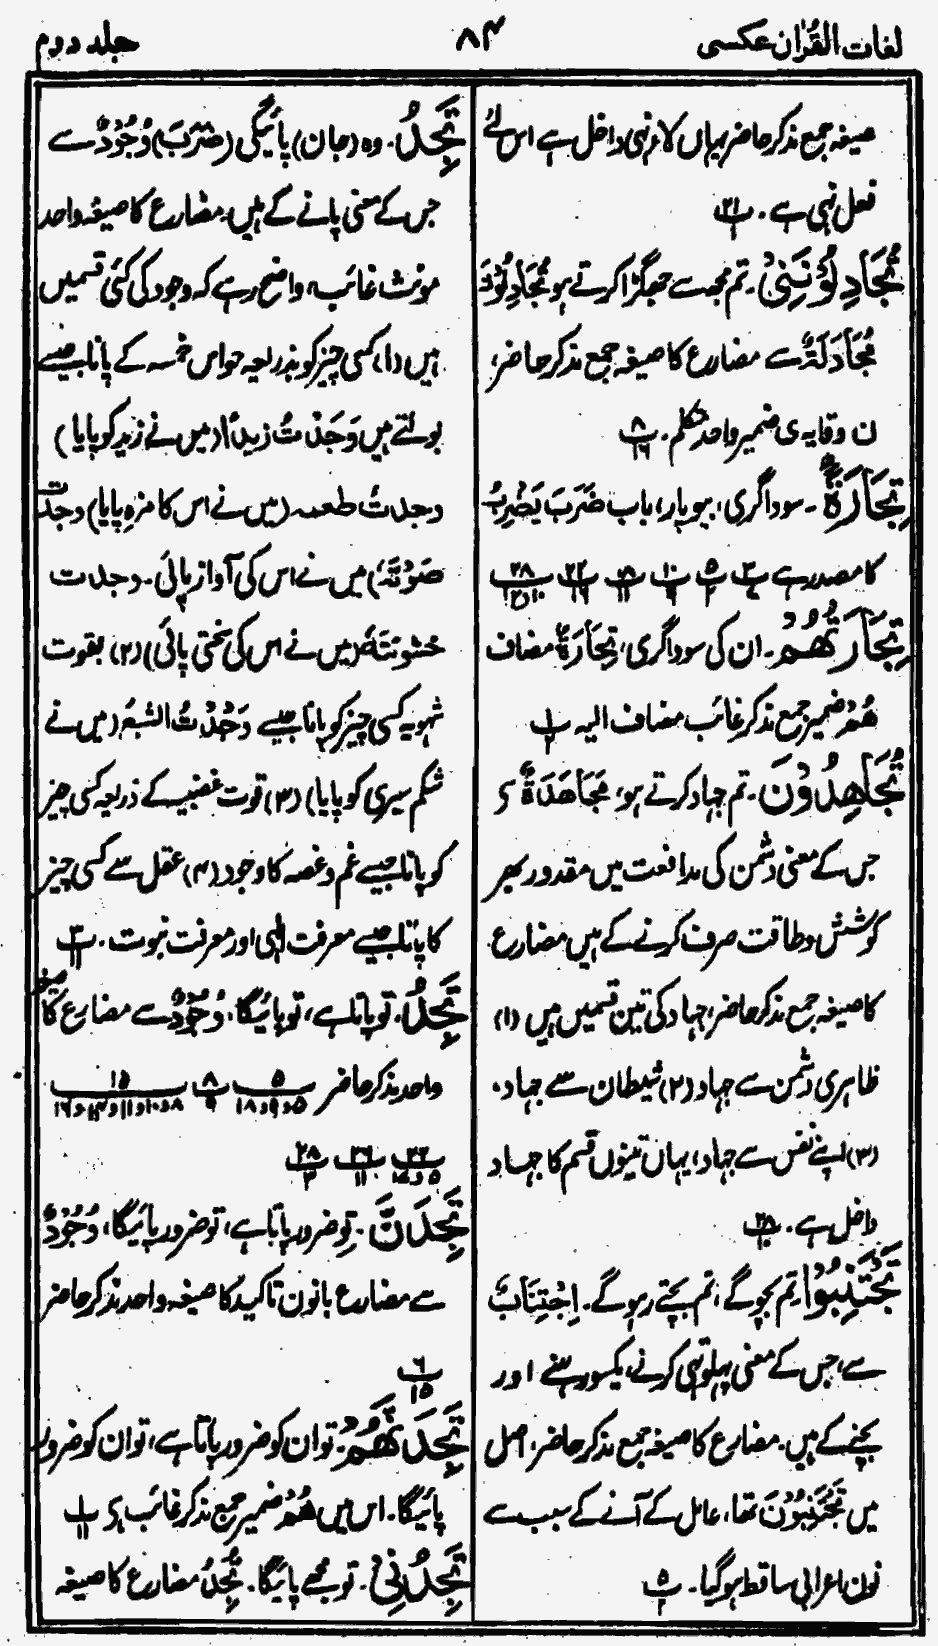 لغات القرآن عکسی
۸۴
جلد دوم
صیغہ جمع مذکر حاضر یہاں لاءِ نہی داخل ہے اس لئے
فعل نہی ہے۔
تُجَادِلُوْنَنِیْ۔ تم مجھ سے جھگڑا کرتے ہو تُجَادِلُوْنَ
مُجَادَلَۃٌ سے مضارع کا صیغہ جمع مذکر حاضر،
ن وقایہ ی ضمیر واحد متکلم۔ ۸/۱۶
تِجَارَۃً۔ سوداگری، بیوپار، باب ضَرَبَ یَضْرِبُ
کا مصدر ہے
تِجَارَتُھُمْ۔ ان کی سوداگری، تِجَارَۃُ مضاف
ھُمْ ضمیر جمع مذکر غائب مضاف الیہ
تُجَاھِدُوْنَ۔ تم جہاد کرتے ہو، مُجَاھَدَۃٌ سے
جس کے معنی دشمن کی مدافعت میں مقدور بھر
کوشش و طاقت صرف کرنے کے ہیں مضارع
کا صیغہ جمع مذکر حاضر، جہاد کی تین قسمیں ہیں (۱)
ظاہری دشمن سے جہاد (۲) شیطان سے جہاد۔
(۳) اپنے نفس سے جہاد، یہاں تینوں قسم کا جہاد
داخل ہے۔
تَجْتَنِبُوْا تم بچو گے، تم بچتے رہو گے۔ اِجْتِنَابٌ
سے، جس کے معنی پہلو تہی کرنے، یکسو رہنے اور
بچنے کے ہیں۔ مضارع کا صیغہ جمع مذکر حاضر، اصل
میں تَجْتَنِبُوْنَ تھا، عامل کے آنے کے سبب سے
نون اعرابی ساقط ہو گیا۔ ۵
تَجِدُ۔ وہ (جان) پائیگی (ضَرَبَ) وُجُوْدٌ سے
جس کے معنی پانے کے ہیں، مضارع کا صیغہ واحد
مونث غائب، واضح رہے کہ وجود کی کئی قسمیں
ہیں (۱) کسی چیز کو بذریعہ حواس خمسہ کے پانا جیسے
بولتے ہیں وَجَدْتُ زیدًا (میں نے زید کو پایا)
وجدتُ طعمہ (میں نے اس کا مزہ پایا) وجدت
صَوْتَہٗ (میں نے اس کی آواز پائی۔ وجدت
خشونتَہٗ (میں نے اس کی سختی پائی) (۲) بقوت
شہویہ کسی چیز کو پانا جیسے وَجَدْتُ الشبعَ (میں نے
شکم سیری کو پایا) (۳) قوت غضبیہ کے ذریعہ کسی چیز
کو پانا جیسے غم و غصہ کا وجود (۴) عقل سے کسی چیز
کا پانا جیسے معرفت الٰہی اور معرفت نبوت۔ ۳/۱۱
تَجِدُ۔ تو پاتا ہے، تو پائیگا، وُجُوْدٌ سے مضارع کا صیغہ
واحد مذکر حاضر ۵/۵و۹و۱۸ ۸/۹ ۱۵/۸و۱۰و۱۱و۱۴و۱۶
تَجِدَنَّ۔ تو ضرور پاتا ہے، تو ضرور پائیگا، وُجُوْدٌ
سے مضارع بانون تاکید کا صیغہ واحد مذکر حاضر
۶/۱۵
تَجِدَنَّھُمْ۔ تو ان کو ضرور پاتا ہے، تو ان کو ضرور
پائیگا۔ اس میں ھُمْ ضمیر جمع مذکر غائب ہے ۱/۱۱
تَجِدُنِیْ۔ تو مجھے پائیگا۔ تَجِدُ مضارع کا صیغہ